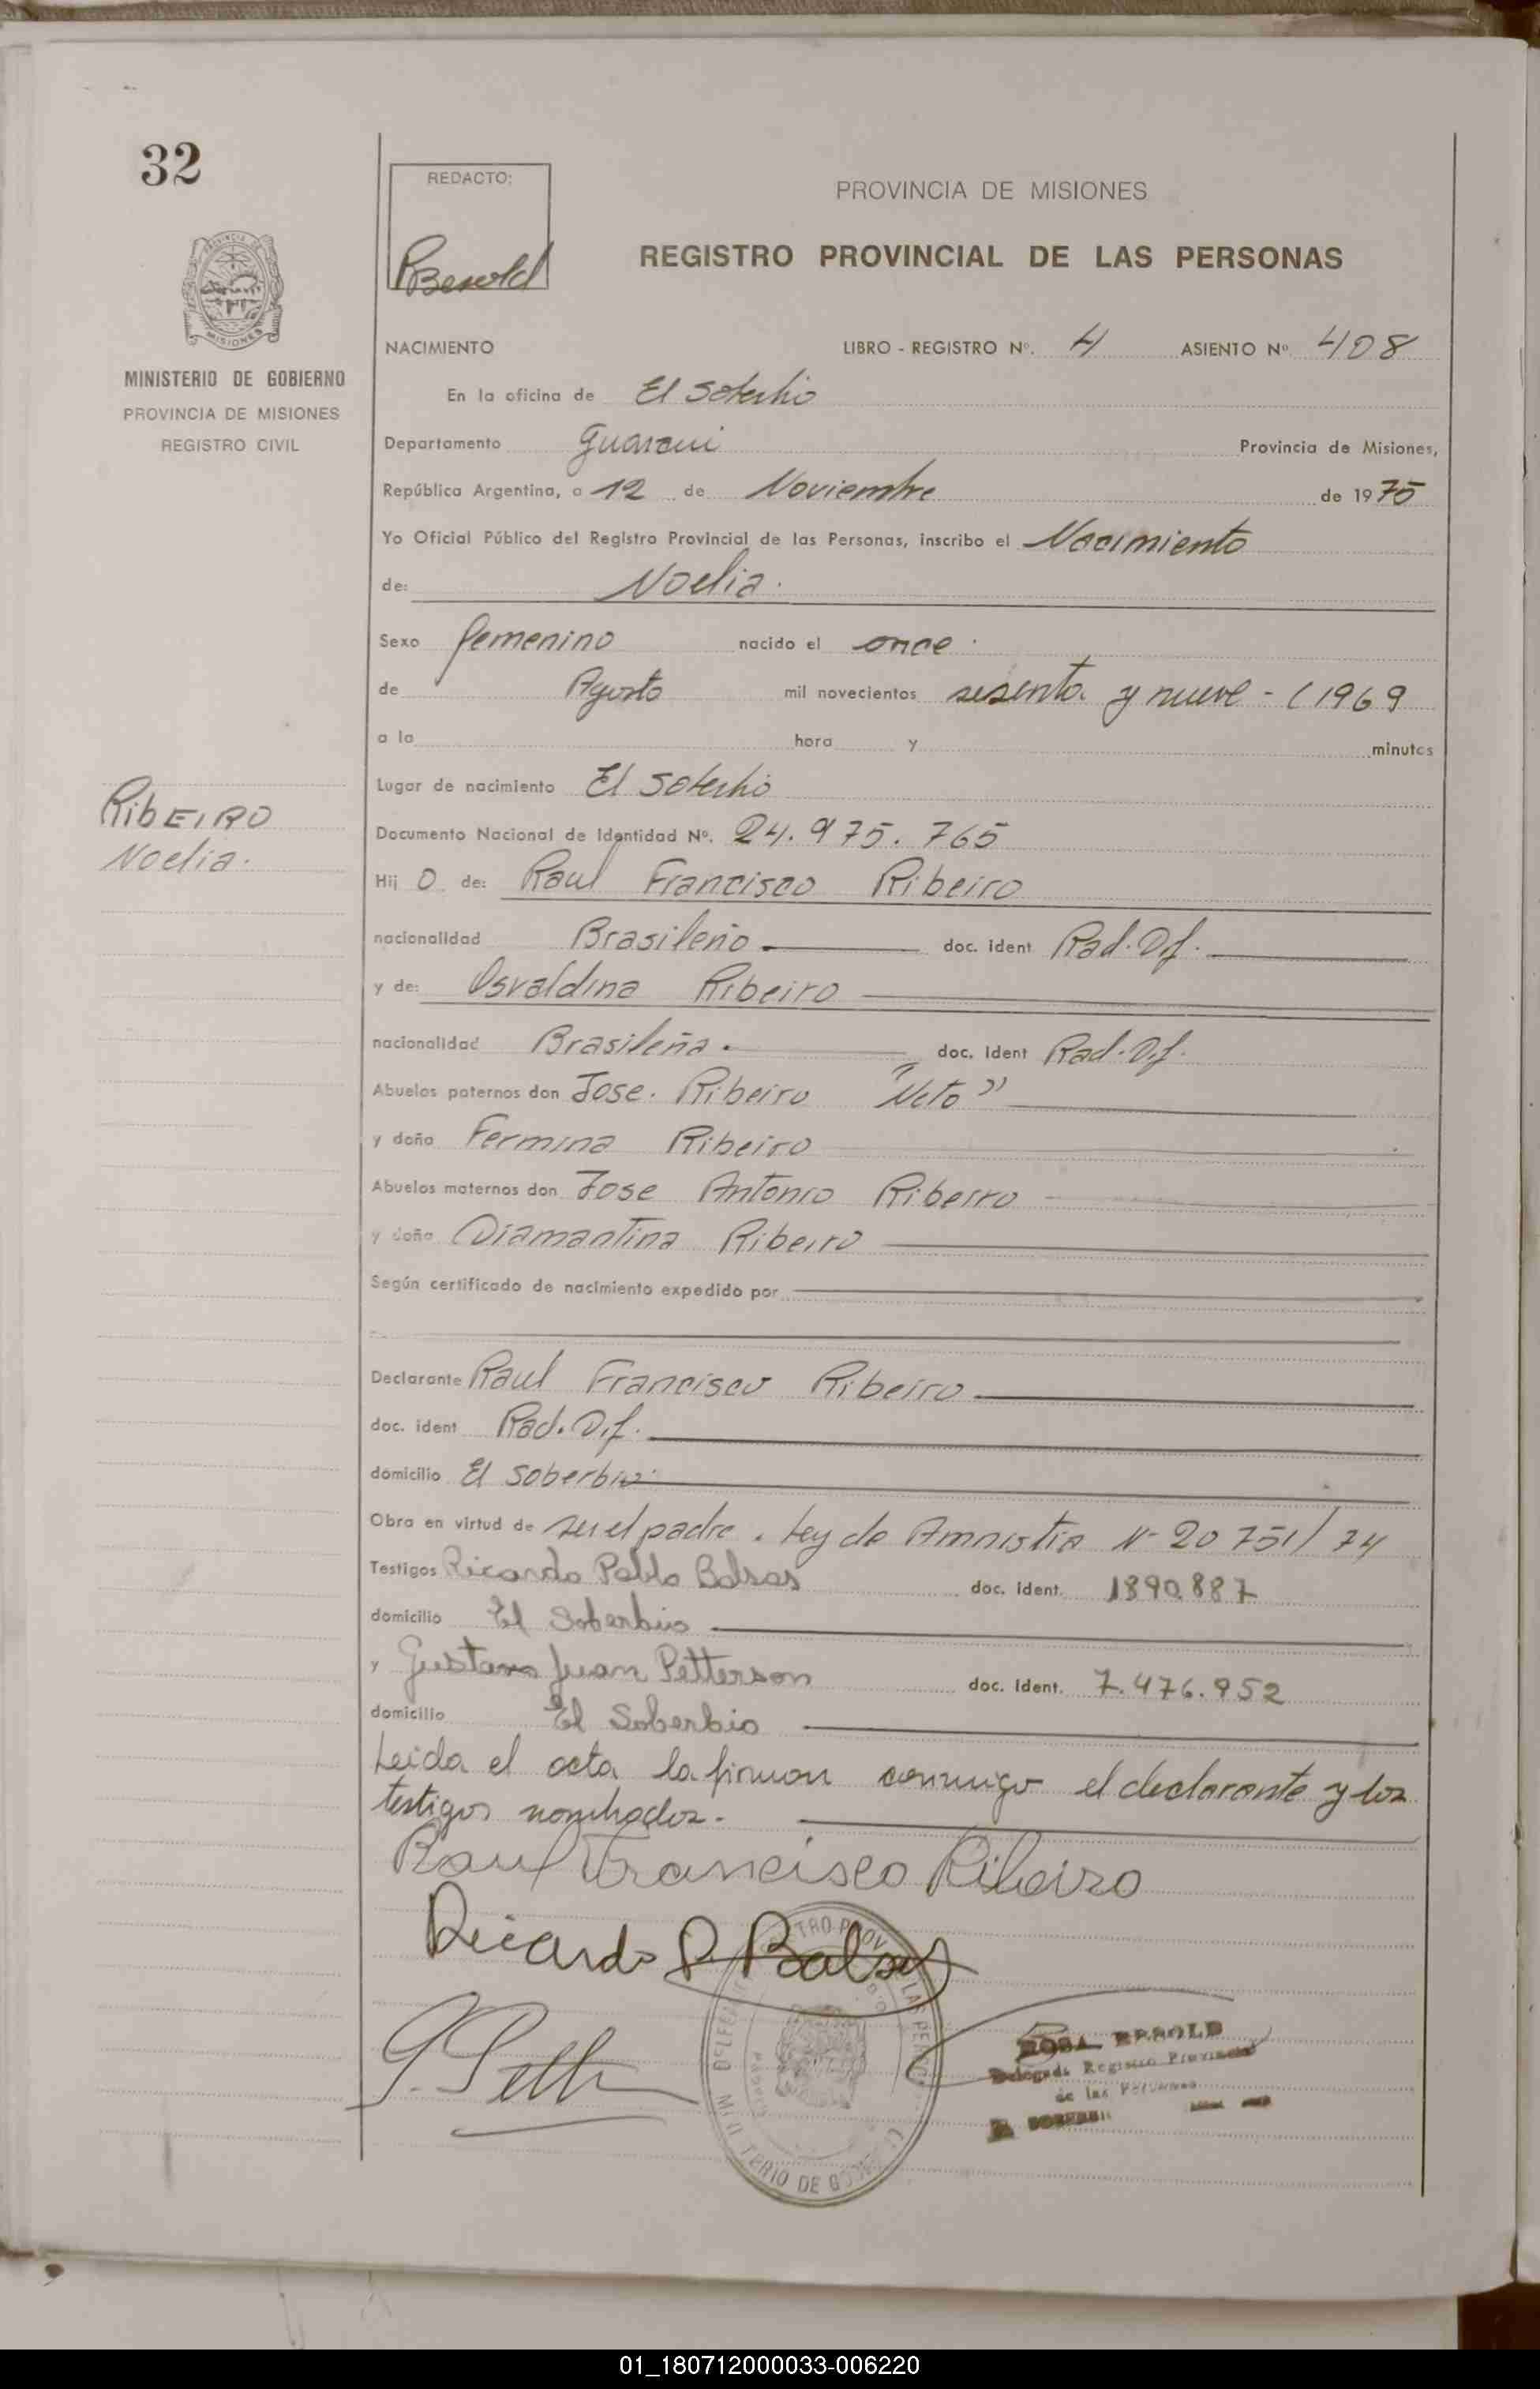 32
REDACTO:
PBesold
PROVINCIA DE MISIONES
REGISTRO PROVINCIAL DE LAS PERSONAS
PROVINCIA DE
MISIONES
MINISTERIO DE GOBIERNO
PROVINCIA DE MISIONES
REGISTRO CIVIL
NACIMIENTO LIBRO - REGISTRO Nº. 4 ASIENTO Nº 408
En la oficina de El Soberbio
Departamento Guarani Provincia de Misiones,
República Argentina, a 12 de Noviembre de 1975
Yo Oficial Público del Registro Provincial de las Personas, inscribo el Nacimiento
de: Noelia.
Sexo femenino nacido el once.
de Agosto mil novecientos sesenta y nueve - (1969
a la hora y minutos
Lugar de nacimiento El Soberbio
RibEIRO
Noelia.
Documento Nacional de Identidad Nº. 24.975.765
Hij O de: Raul Francisco Ribeiro
nacionalidad Brasileño doc. ident Rad. Df.
y de: Osvaldina Ribeiro
nacionalidad Brasileña. doc. ident Rad. D.f.
Abuelos paternos don Jose. Ribeiro "Neto"
y doña Fermina Ribeiro
Abuelos maternos don Jose Antonio Ribeiro
y doña Diamantina Ribeiro
Según certificado de nacimiento expedido por
Declarante Raul Francisco Ribeiro
doc. ident Rad. D.f.
domicilio El Soberbio.
Obra en virtud de ser el padre. Ley de Amnistia Nº 20 751/74
Testigos Ricardo Pablo Balsas doc. ident. 1890.887
domicilio El Soberbio
y Gustavo Juan Petterson doc. ident. 7.476.952
domicilio El Soberbio
Leida el acta la firman conmigo el declarante y los
testigos nombrados.
Raul Francisco Ribeiro
Ricardo P. Balsas
G. Pett
ROSA BESOLD
Delegada Registro Provincial
de las Personas
EL SOBERBIO
MINISTERIO DE GOBIERNO
01_180712000033-006220